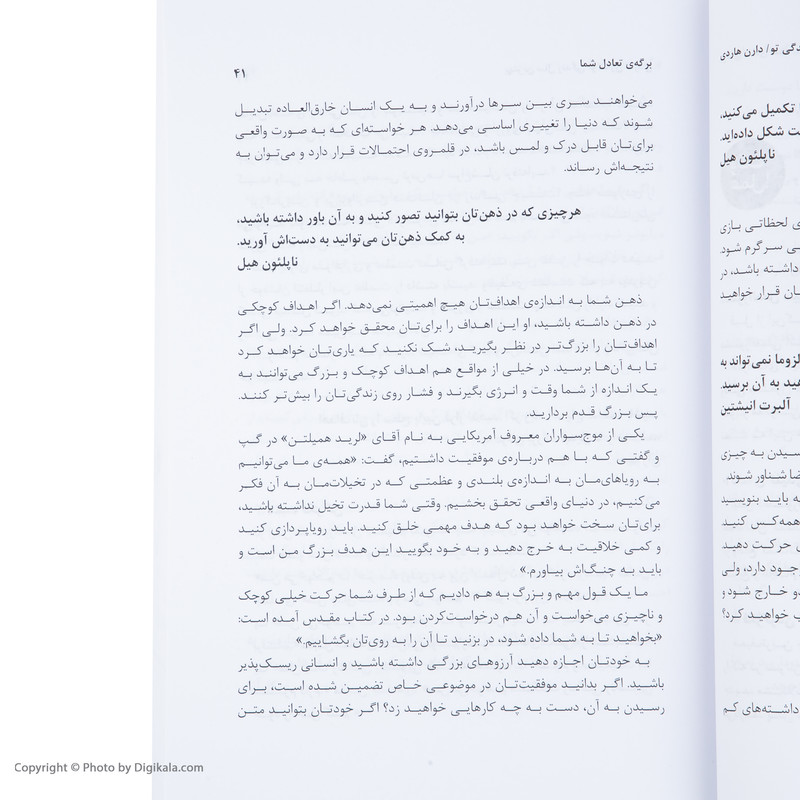 برگه‌ی تعادل شما
۴۱
می‌خواهند سری بین سرها درآورند و به یک انسان خارق‌العاده تبدیل
شوند که دنیا را تغییری اساسی می‌دهد. هر خواسته‌ای که به صورت واقعی
برای‌تان قابل درک و لمس باشد، در قلمروی احتمالات قرار دارد و می‌توان به
نتیجه‌اش رساند.
هرچیزی که در ذهن‌تان بتوانید تصور کنید و به آن باور داشته باشید،
به کمک ذهن‌تان می‌توانید به دست‌اش آورید.
ناپلئون هیل
ذهن شما به اندازه‌ی اهداف‌تان هیچ اهمیتی نمی‌دهد. اگر اهداف کوچکی
در ذهن داشته باشید، او این اهداف را برای‌تان محقق خواهد کرد. ولی اگر
اهداف‌تان را بزرگ‌تر در نظر بگیرید، شک نکنید که یاری‌تان خواهد کرد
تا به آن‌ها برسید. در خیلی از مواقع هم اهداف کوچک و بزرگ می‌توانند به
یک اندازه از شما وقت و انرژی بگیرند و فشار روی زندگی‌تان را بیش‌تر کنند.
پس بزرگ قدم بردارید.
یکی از موج‌سواران معروف آمریکایی به نام آقای «لرید همیلتن» در گپ
و گفتی که با هم درباره‌ی موفقیت داشتیم، گفت: «همه‌ی ما می‌توانیم
به رویاهای‌مان به اندازه‌ی بلندی و عظمتی که در تخیلات‌مان به آن فکر
می‌کنیم، در دنیای واقعی تحقق بخشیم. وقتی شما قدرت تخیل نداشته باشید،
برای‌تان سخت خواهد بود که هدف مهمی خلق کنید. باید رویاپردازی کنید
و کمی خلاقیت به خرج دهید و به خود بگویید این هدف بزرگ من است و
باید به چنگ‌اش بیاورم.»
ما یک قول مهم و بزرگ به هم دادیم که از طرف شما حرکت خیلی کوچک
و ناچیزی می‌خواست و آن هم درخواست‌کردن بود. در کتاب مقدس آمده است:
«بخواهید تا به شما داده شود، در بزنید تا آن را به روی‌تان بگشاییم.»
به خودتان اجازه دهید آرزوهای بزرگی داشته باشید و انسانی ریسک‌پذیر
باشید. اگر بدانید موفقیت‌تان در موضوعی خاص تضمین شده است، برای
رسیدن به آن، دست به چه کارهایی خواهید زد؟ اگر خودتان بتوانید متن
تو/ دارن هاردی
تکمیل می‌کنید،
شکل داده‌اید.
ناپلئون هیل
لحظاتی بازی
سرگرم شود.
داشته باشد، در
قرار خواهید
نمی‌تواند به
به آن برسید.
آلبرت انیشتین
به چیزی
شناور شوند.
باید بنویسید
همه‌کس کنید.
حرکت دهید
دارد، ولی
خارج شود و
خواهید کرد؟
داشته‌های کم
Copyright © Photo by Digikala.com